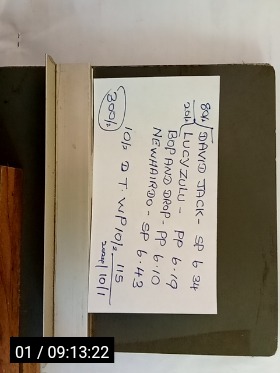 80/2 DAVID JACK - SP 6.34
20/2 LUCY ZULU - PP 6.19
BOP AND DROP - PP 6.10
NEWHAIRDO - SP 6.43
10/2 D T. W P 10/2 115
300/2
01 / 09:13:22